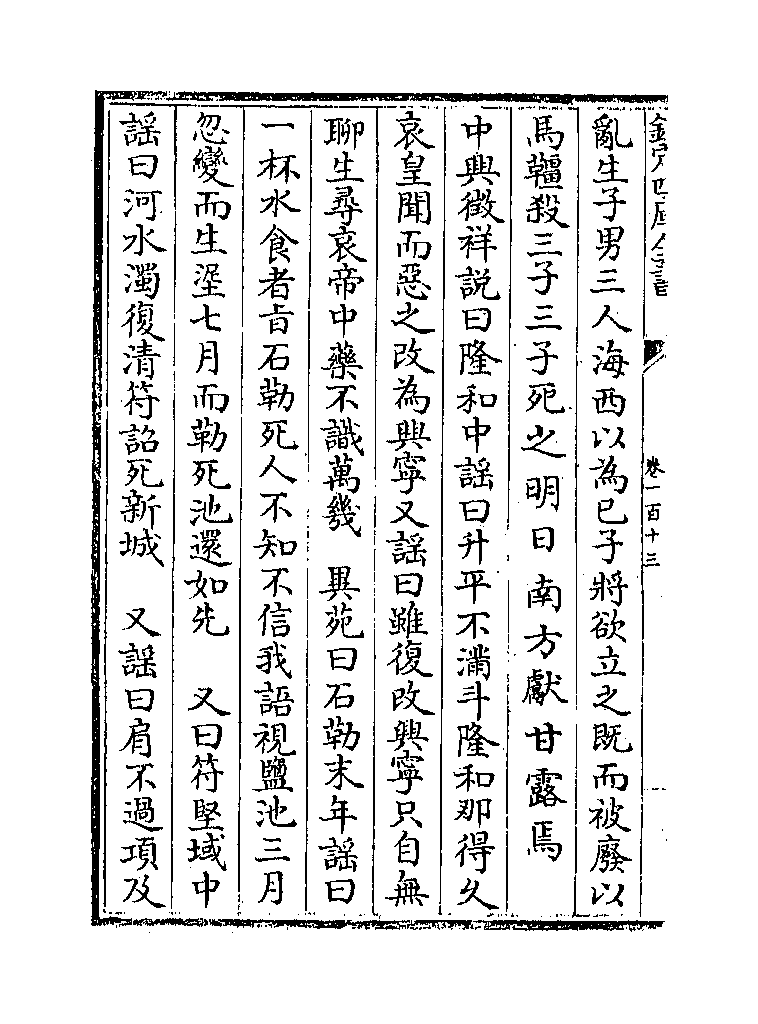 欽定四庫全書
卷一百十三
亂生子男三人海西以為已子將欲立之既而被廢以
馬韁殺三子三子死之明日南方獻甘露焉
中興徴祥說曰隆和中謡曰升平不滿斗隆和那得久
哀皇聞而惡之改為興寧又謡曰雖復改興寧只自無
聊生尋哀帝中藥不識萬幾　異苑曰石勒末年謡曰
一杯水食者㫖石勒死人不知不信我語視鹽池三月
忽變而生埿七月而勒死池還如先　又曰符堅域中
謡曰河水濁復清符詔死新城　又謡曰肩不過項及